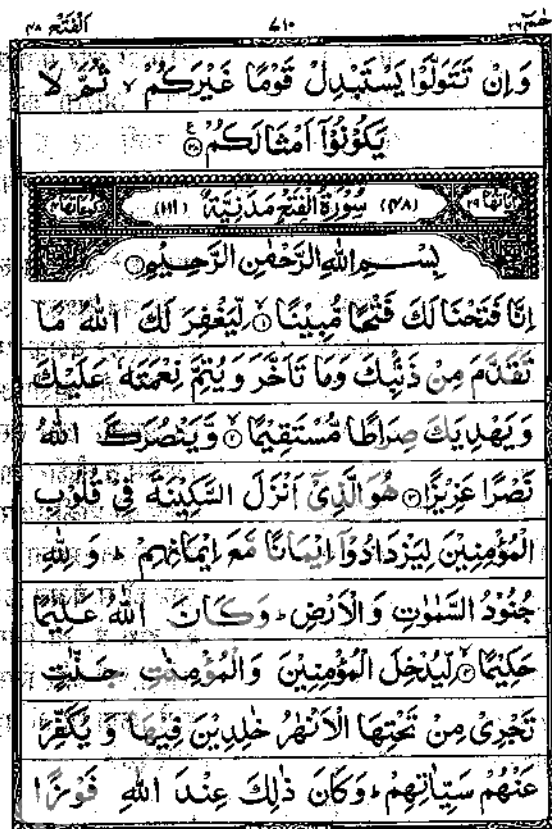 الفتح ۴۸ ۷۱۰ حٰمٓ ۲۶
وَاِنْ تَتَوَلَّوْا يَسْتَبْدِلْ قَوْمًا غَيْرَكُمْ ۙ ثُمَّ لَا
يَكُوْنُوْٓا اَمْثَالَكُمْ ﴿۳۸﴾ ع
اٰيَاتُهَا ۲۹ (۴۸) سُوْرَةُ الْفَتْحِ مَدَنِيَّةٌ (۱۱۱) رُكُوْعَاتُهَا ۴
بِسْمِ اللهِ الرَّحْمٰنِ الرَّحِيْمِ
اِنَّا فَتَحْنَا لَكَ فَتْحًا مُّبِيْنًا ﴿۱﴾ۙ لِّيَغْفِرَ لَكَ اللهُ مَا
تَقَدَّمَ مِنْ ذَنْۢبِكَ وَمَا تَاَخَّرَ وَيُتِمَّ نِعْمَتَهٗ عَلَيْكَ
وَيَهْدِيَكَ صِرَاطًا مُّسْتَقِيْمًا ﴿۲﴾ۙ وَّيَنْصُرَكَ اللهُ
نَصْرًا عَزِيْزًا ﴿۳﴾ هُوَ الَّذِيْٓ اَنْزَلَ السَّكِيْنَةَ فِيْ قُلُوْبِ
الْمُؤْمِنِيْنَ لِيَزْدَادُوْٓا اِيْمَانًا مَّعَ اِيْمَانِهِمْ ؕ وَ لِلّٰهِ
جُنُوْدُ السَّمٰوٰتِ وَالْاَرْضِ ؕ وَكَانَ اللهُ عَلِيْمًا
حَكِيْمًا ﴿۴﴾ۙ لِّيُدْخِلَ الْمُؤْمِنِيْنَ وَالْمُؤْمِنٰتِ جَنّٰتٍ
تَجْرِيْ مِنْ تَحْتِهَا الْاَنْهٰرُ خٰلِدِيْنَ فِيْهَا وَ يُكَفِّرَ
عَنْهُمْ سَيِّاٰتِهِمْ ؕ وَكَانَ ذٰلِكَ عِنْدَ اللهِ فَوْزًا